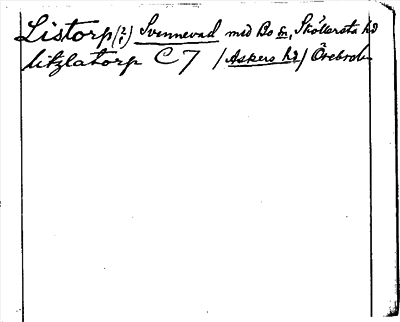 Listorp (2/1) Svennevad med Bo sn, Sköllersta hd
litzlatorp C 7 /Askers hd/ Örebro län